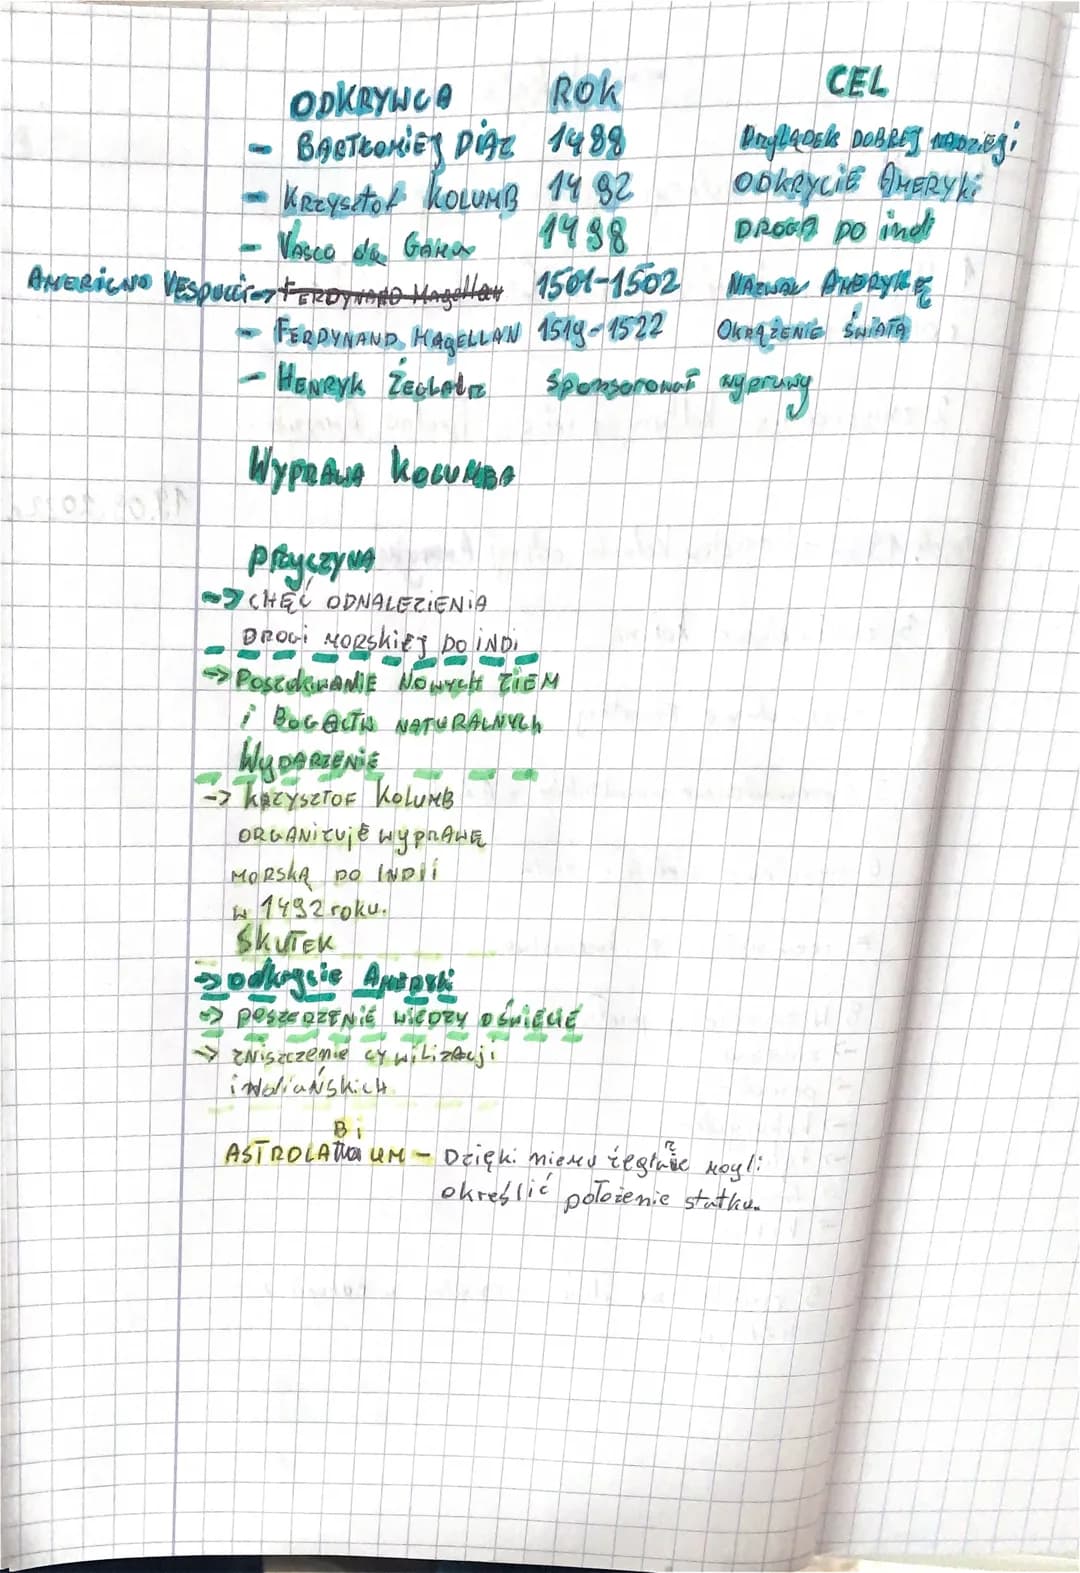 ODKRYWCA ROK CEL
- BARTŁOMIEJ DIAZ 1488 PRZYLĄDEK DOBREJ NADZIEJI
- KRZYSZTOF KOLUMB 1492 ODKRYCIE AMERYKI
- VASCO da GAMA 1498 DROGA DO indi
AMERIGNO VESPUCCI -> FERDYNAND Magellan 1501-1502 NAZWAŁ AMERYKĘ
- FERDYNAND MAGELLAN 1519-1522 OKRĄŻENIE ŚWIATA
- HENRYK ŻEGLARZ Sponsorował wyprawy
WYPRAWA KOLUMBA
PRZYCZYNA
-> CHĘĆ ODNALEZIENIA
DROGI MORSKIEJ DO INDI
-> POSZUKIWANIE NOWYCH ZIEM
i BOGACTW NATURALNYCH
WYDARZENIE
-> KRZYSZTOF KOLUMB
ORGANIZUJE WYPRAWĘ
MORSKĄ DO INDII
w 1492 roku.
SKUTEK
-> odkrycie AMERYKI
-> POSZERZENIE WIEDZY O ŚWIECIE
-> ZNISZCZENIE CYWILIZACJI
iNDiAŃSKiCH
Bi
ASTROLA UM - Dzięki niemu żeglarze mogli
określić położenie statku.